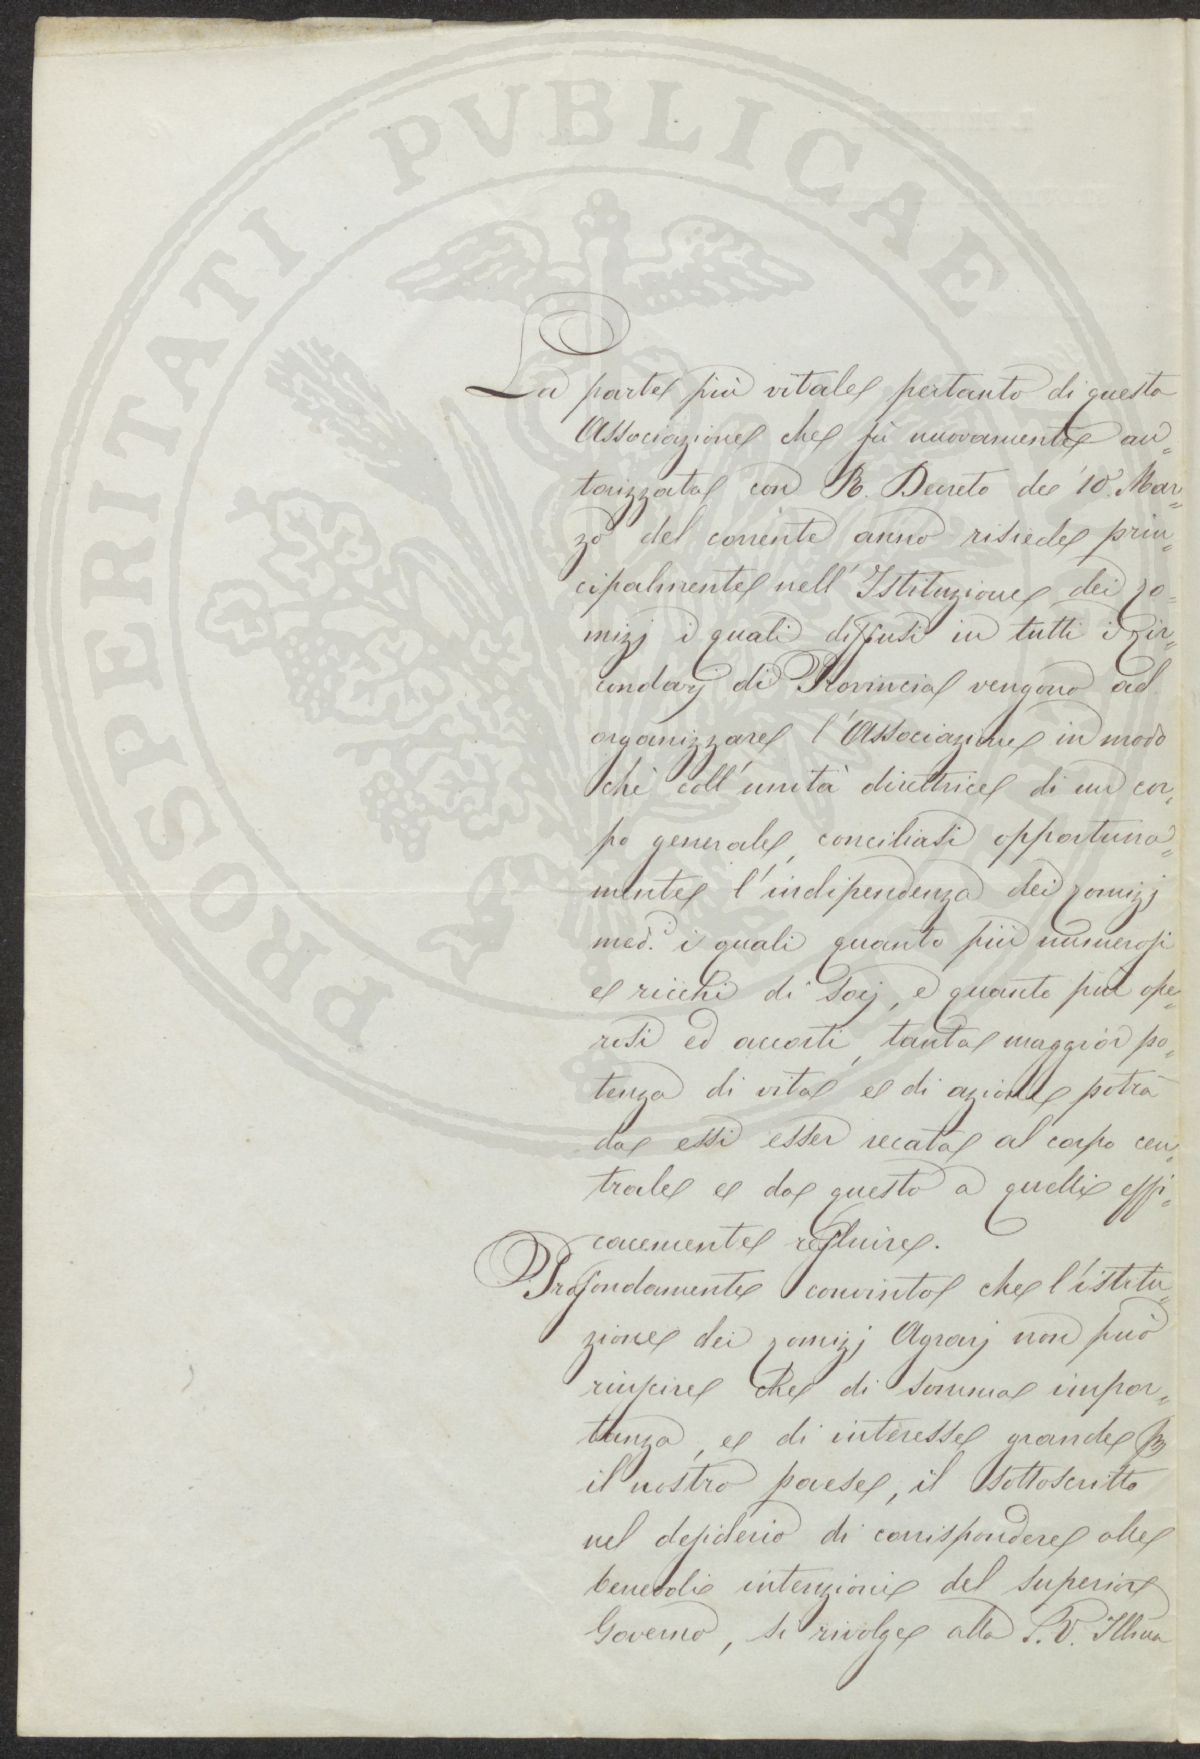 PROSPERITATI PVBLICAE
La parte più vitale pertanto di questa
Associazione che fù nuovamente au„
torizzata con R. Decreto de' 10. Mar„
zo del corrente anno risiede prin„
cipalmente nell'Istituzione dei Co„
mizj i quali diffusi in tutti i Cir„
condarj di Provincia vengono ad
organizzare l'Associazione in modo
chè coll'unità direttrice di un cor„
po generale, conciliasi opportuna„
mente l'indipendenza dei Comizj
med.i i quali quanto più numerosi
e ricchi di Socj, e quanto più ope„
rosi ed accorti, tanta maggior po„
tenza di vita e di azione potrà
da essi esser recata al corpo cen„
trale e da questo a quelli effi„
cacemente refluire.
Profondamente convinto che l'istitu„
zione dei Comizj Agrarj non può
riuscire che di somma impor„
tanza, e di interesse grande p
il nostro paese, il sottoscritto
nel desiderio di corrispondere alle
benevoli intenzioni del superiore
Governo, si rivolge alla S. V. Illma